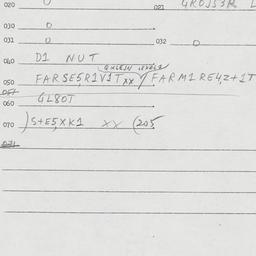 020 0 021 4R0J53R L
030 0
031 0 032 0
040 D1 NUT
050 FARSE5,R1V1Txx / FARM1RE4,2+1T
051
060 GL80T
070 )S+E5,XK1 xx (205,
071